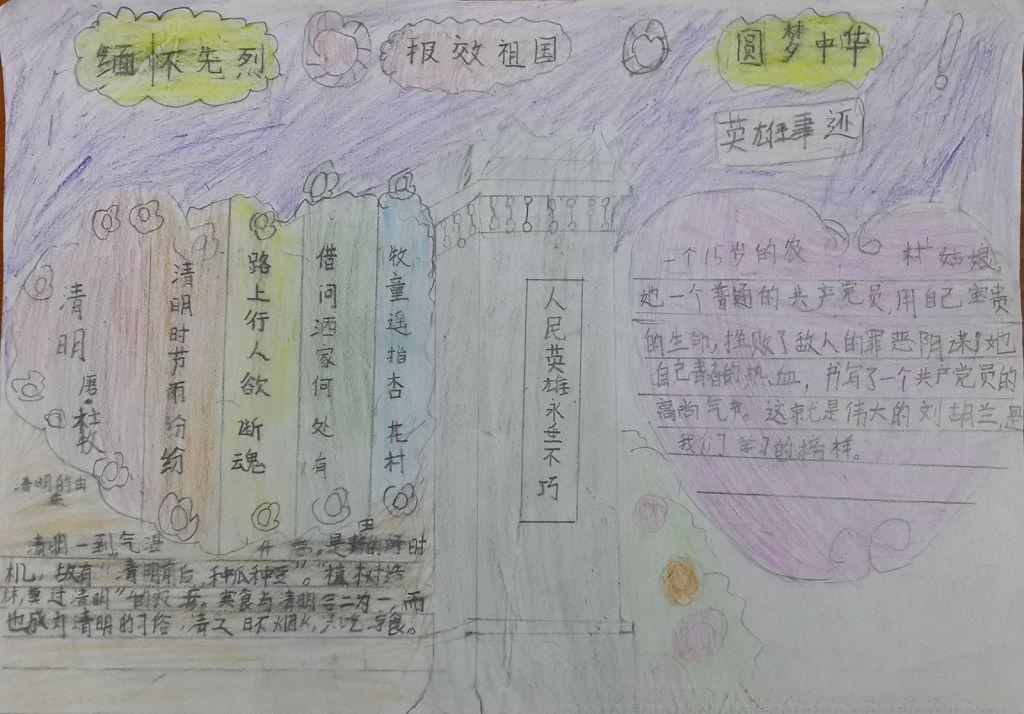 缅怀先烈
报效祖国
圆梦中华!
英雄事迹
清明
唐·杜牧
清明时节雨纷纷
路上行人欲断魂
借问酒家何处有
牧童遥指杏花村
人民英雄永垂不巧
一个15岁的农村姑娘,
她一个普通的共产党员,用自己宝贵
的生命,挫败了敌人的罪恶阴谋,她
自己青春的热血,书写了一个共产党员的
高尚气节。这就是伟大的刘胡兰,是
我们学习的榜样。
清明的由来
清明一到,气温升高,是春耕的好时
机,故有“清明前后,种瓜种豆”。“植树造
林,莫过清明”的农谚。寒食与清明合二为一,而
也成为清明的习俗,清之日不烟火,只吃寒食。